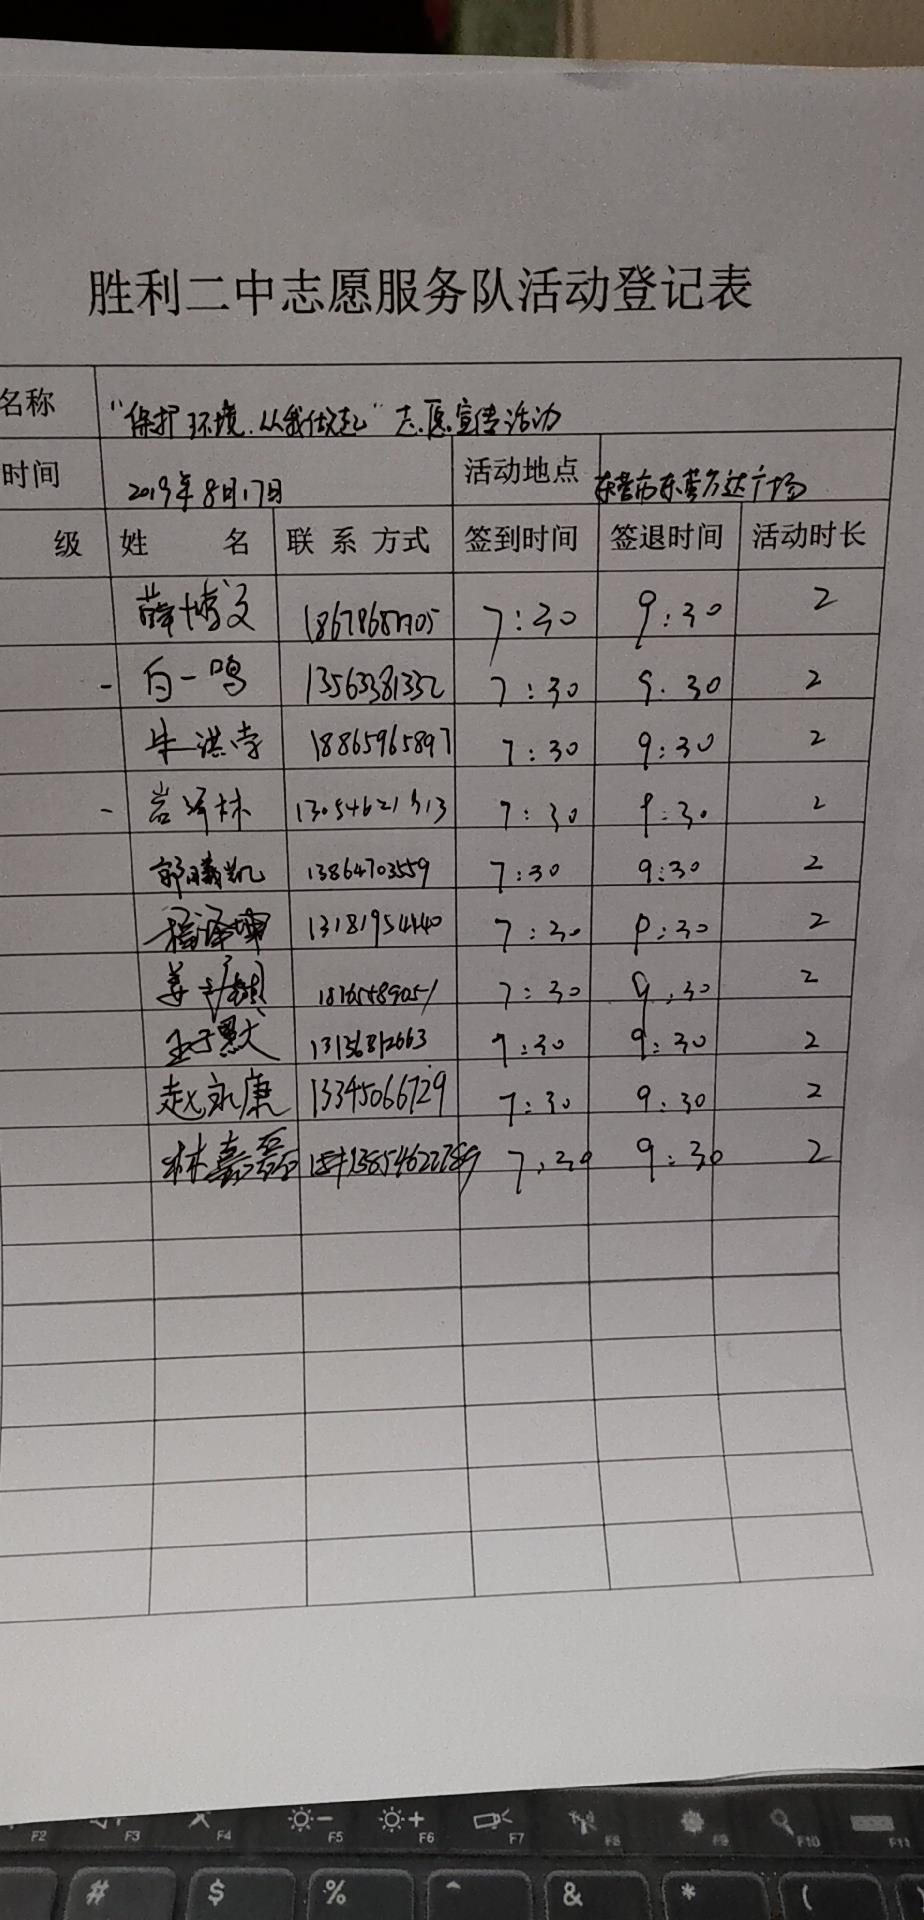 胜利二中志愿服务队活动登记表
名称 "保护环境,从我做起"志愿宣传活动
时间 2019年8月17日 活动地点 东营市东营万达广场
级 姓 名 联系方式 签到时间 签退时间 活动时长
薛博文 7:30 9:30 2
白一鸣 13563381332 7:30 9.30 2
牛洪 18865965897 7:30 9:30 2
林 7:30 9:30 2
郭曦凯 13864703559 7:30 9:30 2
13181954440 7:30 9:30 2
姜 7:30 9:30 2
王子默 7:30 9:30 2
赵永康 13345066729 7:30 9:30 2
林嘉磊 13854622789 7:30 9:30 2
F2 F3 F4 F5 F6 F7 F8 F9 F10 F11
# $ % ^ & * (